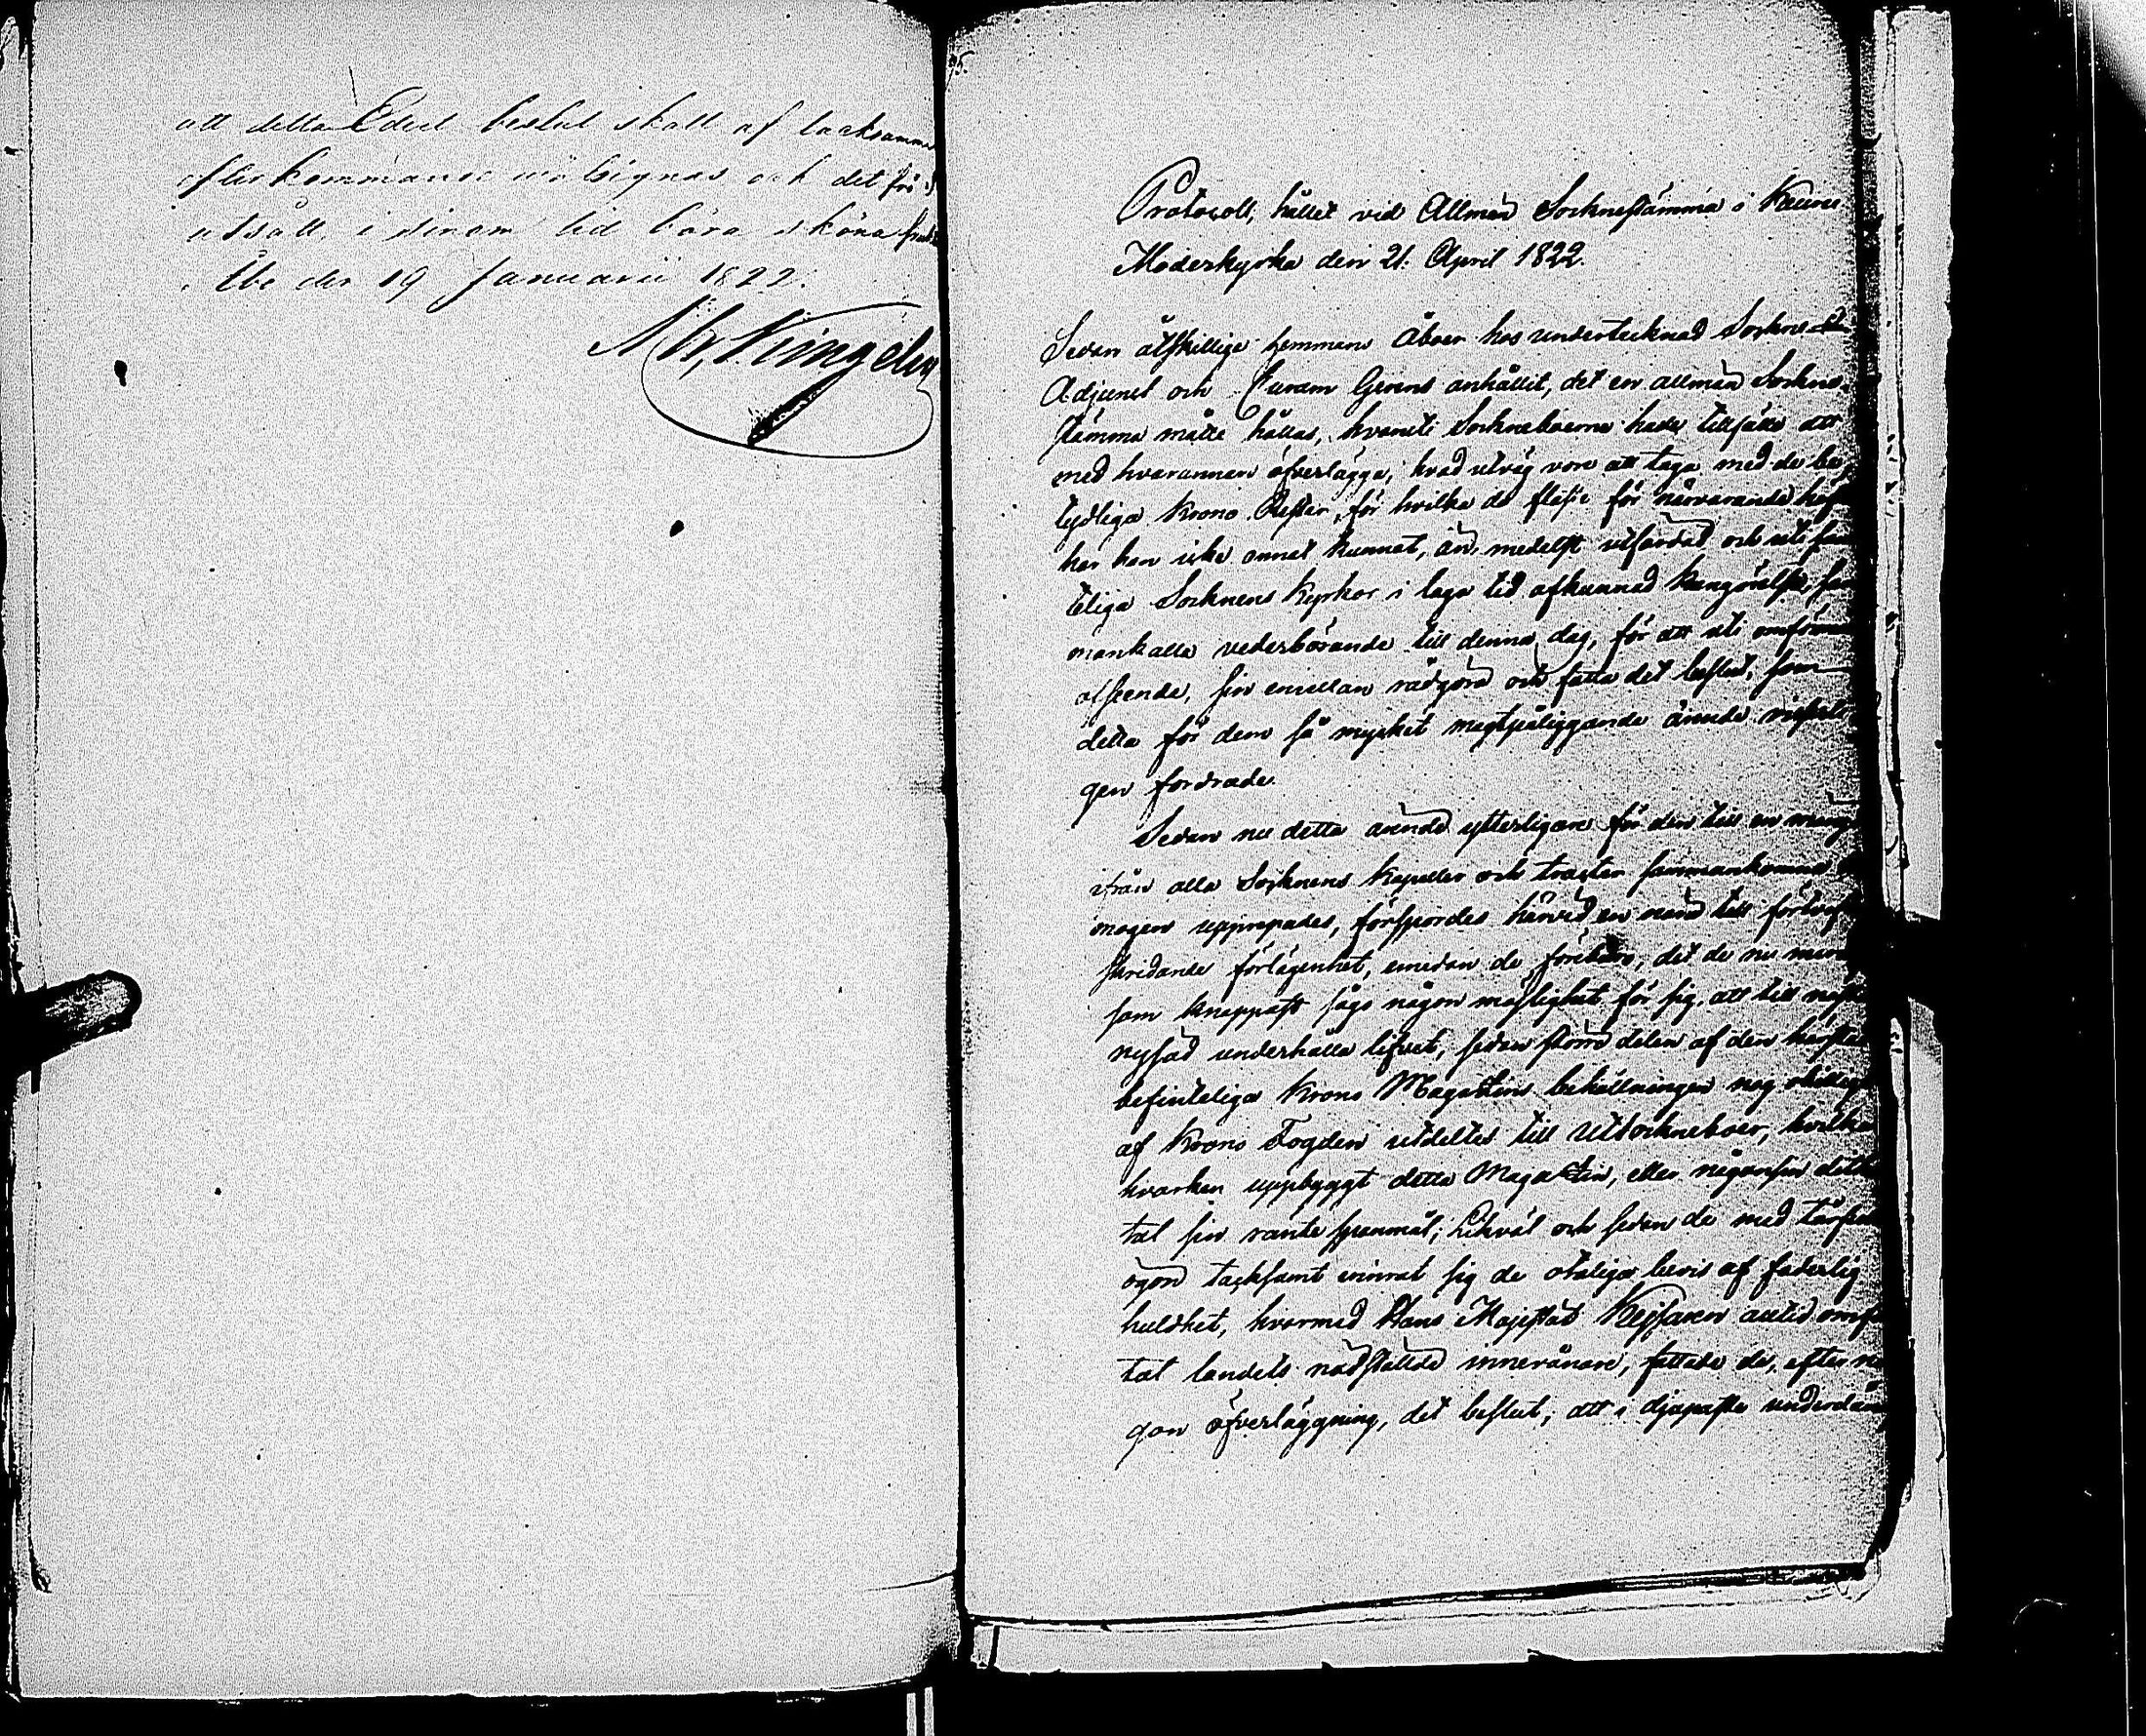 att detta Edert beslut skall af tacksamme
efterkommande välsignas och det frö i
utsådt, i sinom tid bära sköna frukt
Åbo den 19 Januarii 1822.
75.
Protocoll, hållet vid Allmän Socknestämma i
Moderkyrka den 21. April 1822.
Sedan åtskillige hemmans Åboer hos undertecknad Sockne
Adjunct och Curam Gerens anhållit, det en allmän Sockne
stämma måtte hållas, hvarest Sockneboerne hade tillfälle att
med hvarannan öfverlägga, hvad utväg vore att taga med de be
tydliga Krono Rester, för hvilka de fleste för närvarande häf
har han icke annat kunnat, än, medelst utfärdad och uti sam
teliga Socknens Kyrkor i laga tid afkunnad Kungörelse, sam
mankalla vederbörande till denna dag, för att uti omförmä
afseende, sin emillan rådgöra och fatta det beslut, som
detta för dem så mycket magtpåliggande ärende
gen fordrade.
Sedan nu detta ärende ytterligare för den till en mängd
ifrån alla Socknens Kapeller och tracter sammankomne
mogen upprepades, förspordes härvid en
skridande förlägenhet, emedan de föreburo, det de nu mera
som knappast sågo någon möjlighet för sig, att till näst
nysåd underhålla lifvet, sedan större delen af den härstä
befinteliga Krono Magasins behållningen nog obilligt
af Krono Fogden utdeltes till Utsockneboer, hvilka
hvarken uppbyggt detta Magasin, eller någonsin dit
tat sin ränte spannmål; Likväl och sedan de med tårfu
ögon tacksamt erinrat sig de otaliga bevis af faderlig
huldhet, hvarmed Hans Majestät Kejsaren alltid omf
tat landets nödstälde innevånare, fattade de, efter nå
gon öfverläggning, det beslut; att i djupaste underdån